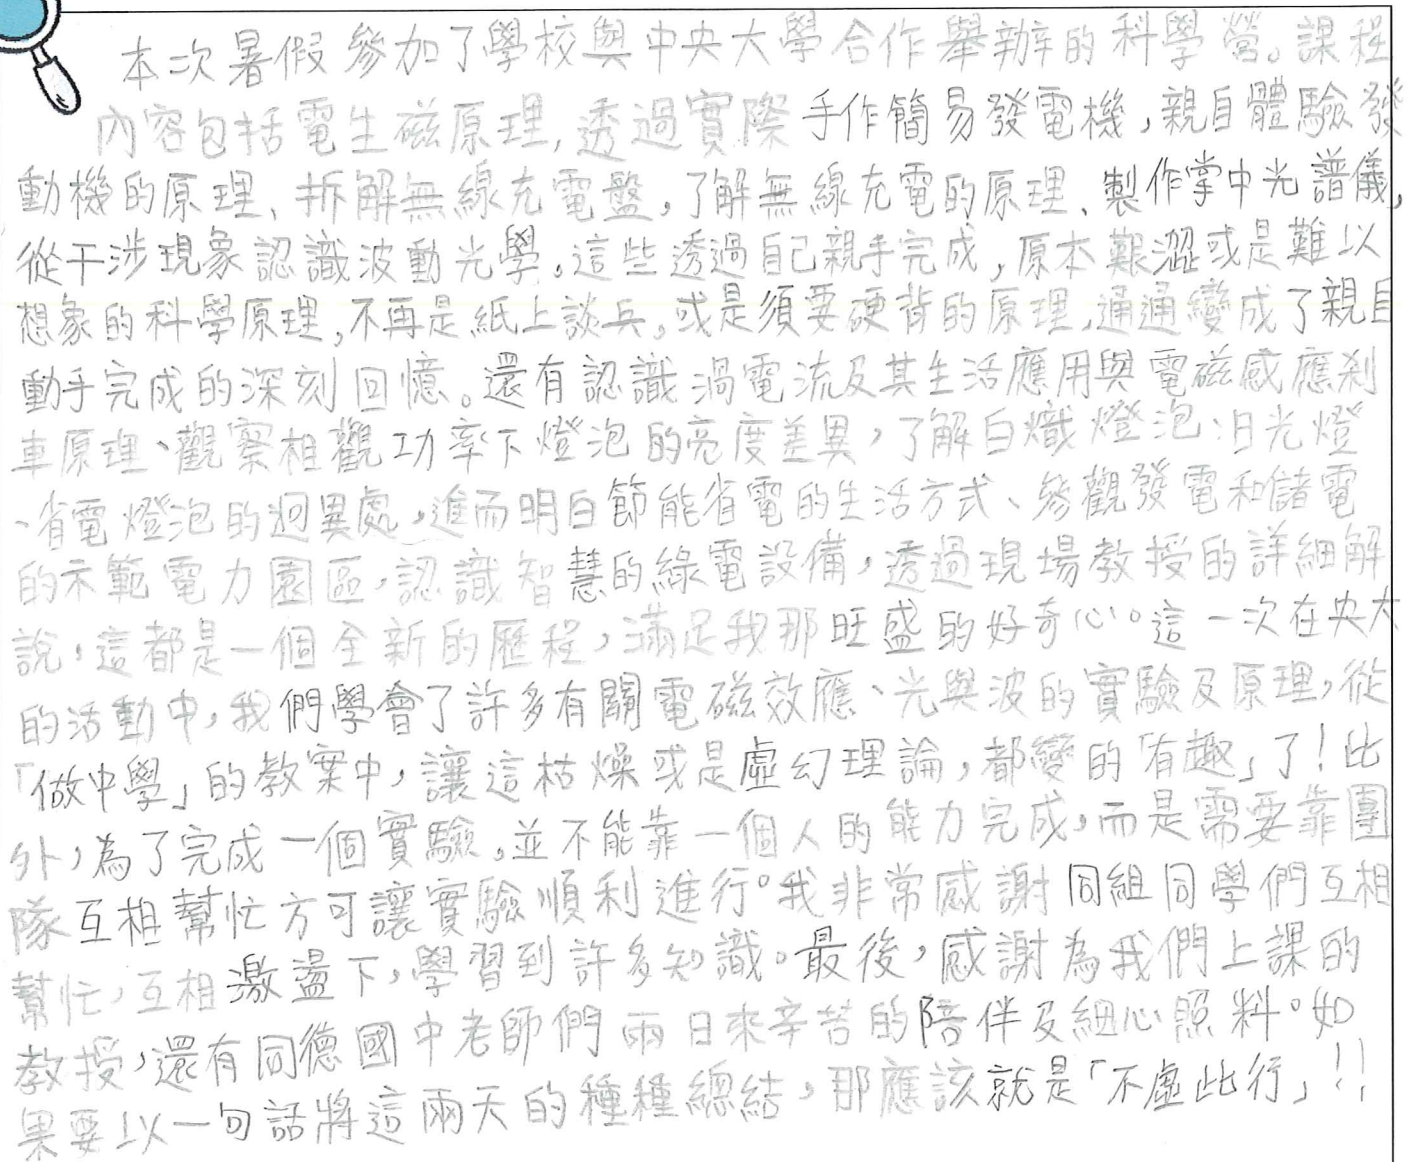 本次暑假參加了學校與中央大學合作舉辦的科學營。課程
內容包括電生磁原理,透過實際手作簡易發電機,親自體驗發
動機的原理、拆解無線充電盤,了解無線充電的原理、製作掌中光譜儀,
從干涉現象認識波動光學。這些透過自己親手完成,原本艱澀或是難以
想象的科學原理,不再是紙上談兵。或是須要硬背的原理,通通變成了親自
動手完成的深刻回憶。還有認識渦電流及其生活應用與電磁感應剎
車原理、觀察相觀功率下燈泡的亮度差異,了解白熾燈泡、日光燈
、省電燈泡的迥異處,進而明白節能省電的生活方式、參觀發電和儲電
的示範電力園區,認識智慧的綠電設備,透過現場教授的詳細解
說,這都是一個全新的歷程,滿足我那旺盛的好奇心。這一次在央大
的活動中,我們學會了許多有關電磁效應、光與波的實驗及原理,從
「做中學」的教案中,讓這枯燥或是虛幻理論,都變的「有趣」了!比
外,為了完成一個實驗,並不能靠一個人的能力完成,而是需要靠團
隊互相幫忙方可讓實驗順利進行。我非常感謝同組同學們互相
幫忙,互相激盪下,學習到許多知識。最後,感謝為我們上課的
教授,還有同德國中老師們兩日來辛苦的陪伴及細心照料。如
果要以一句話將這兩天的種種總結,那應該就是「不虛此行」!!